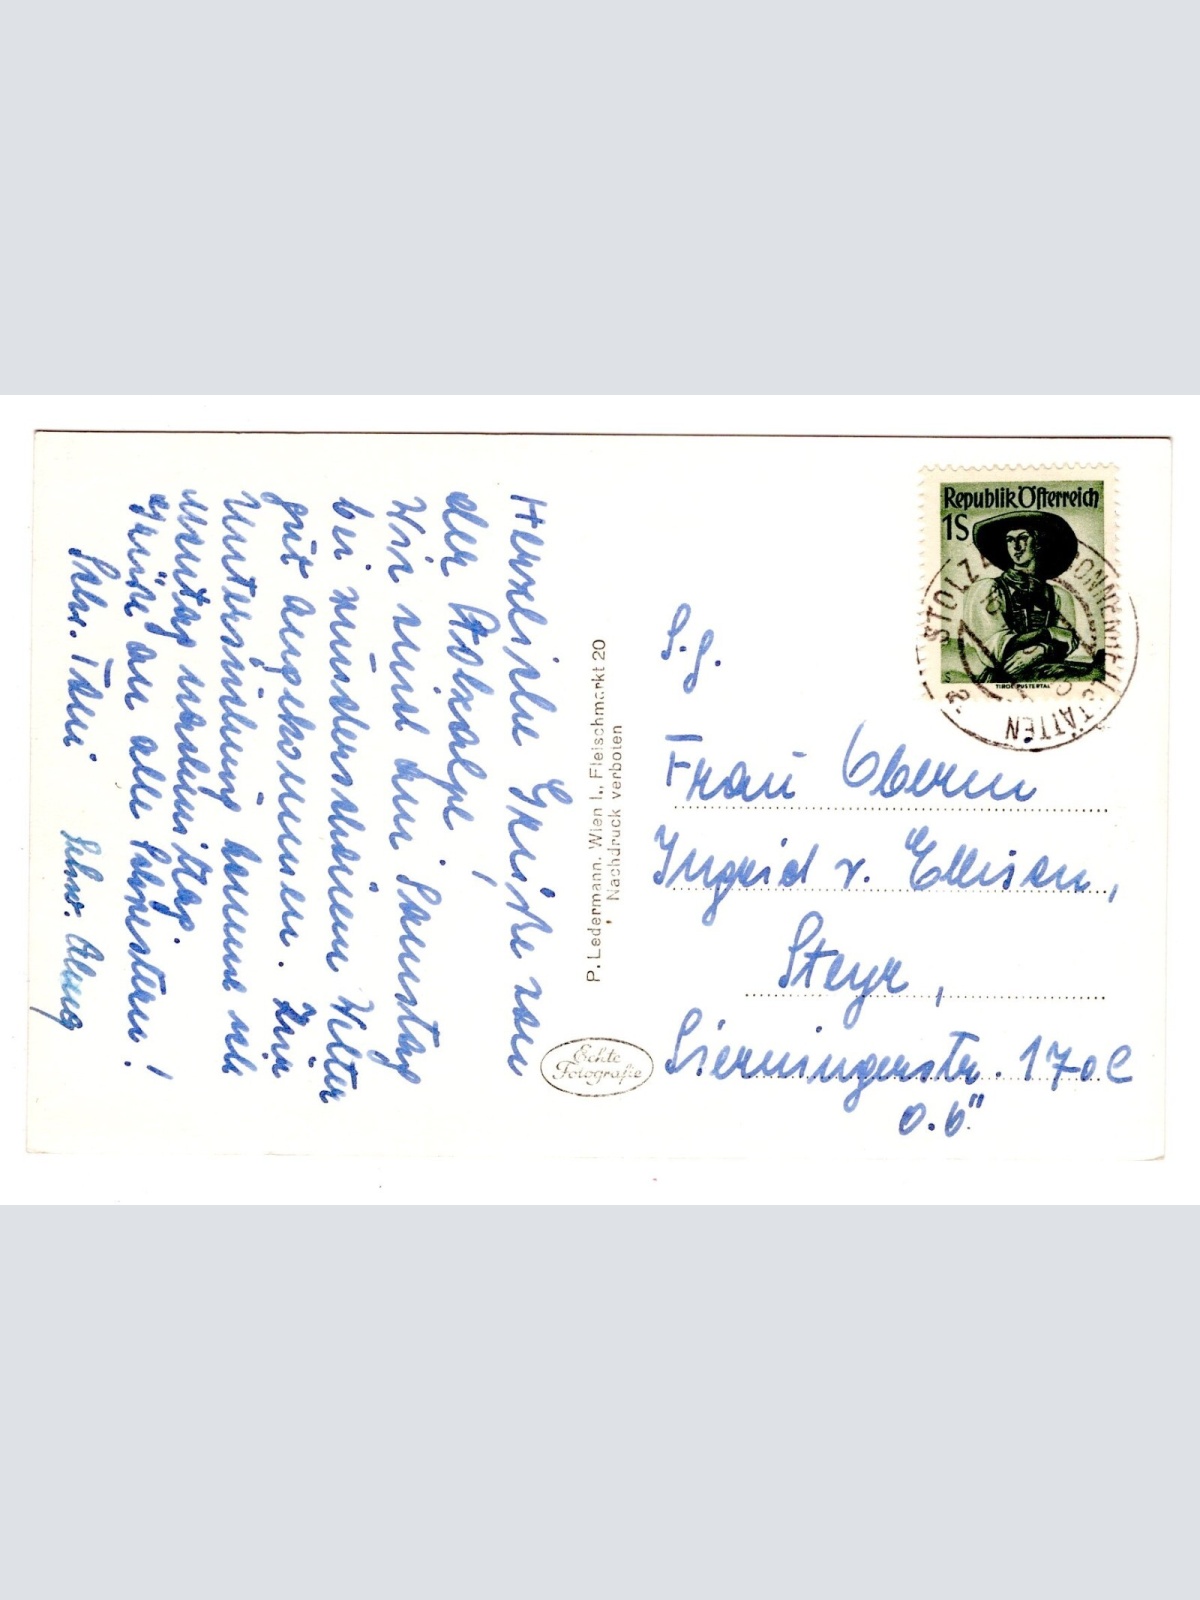 Herzliche Grüße von
der Stolzalpe,
Wir sind am Samstag
bei wunderschönem Wetter
gut angekommen. Zur
Untersuchung komme ich
Montag vormittag.
Grüße an alle Schwestern!
Schw. Trini
Schw.
P. Ledermann, Wien I., Fleischmarkt 20
Nachdruck verboten
Echte
Fotografie
Republik Österreich
1S
TIROL PUSTERTAL
STOLZ
STÄTTEN
S.g.
Frau Oberin
Ingrid v. Ellisen,
Steyr,
Sierningerstr. 170c
O.Ö.